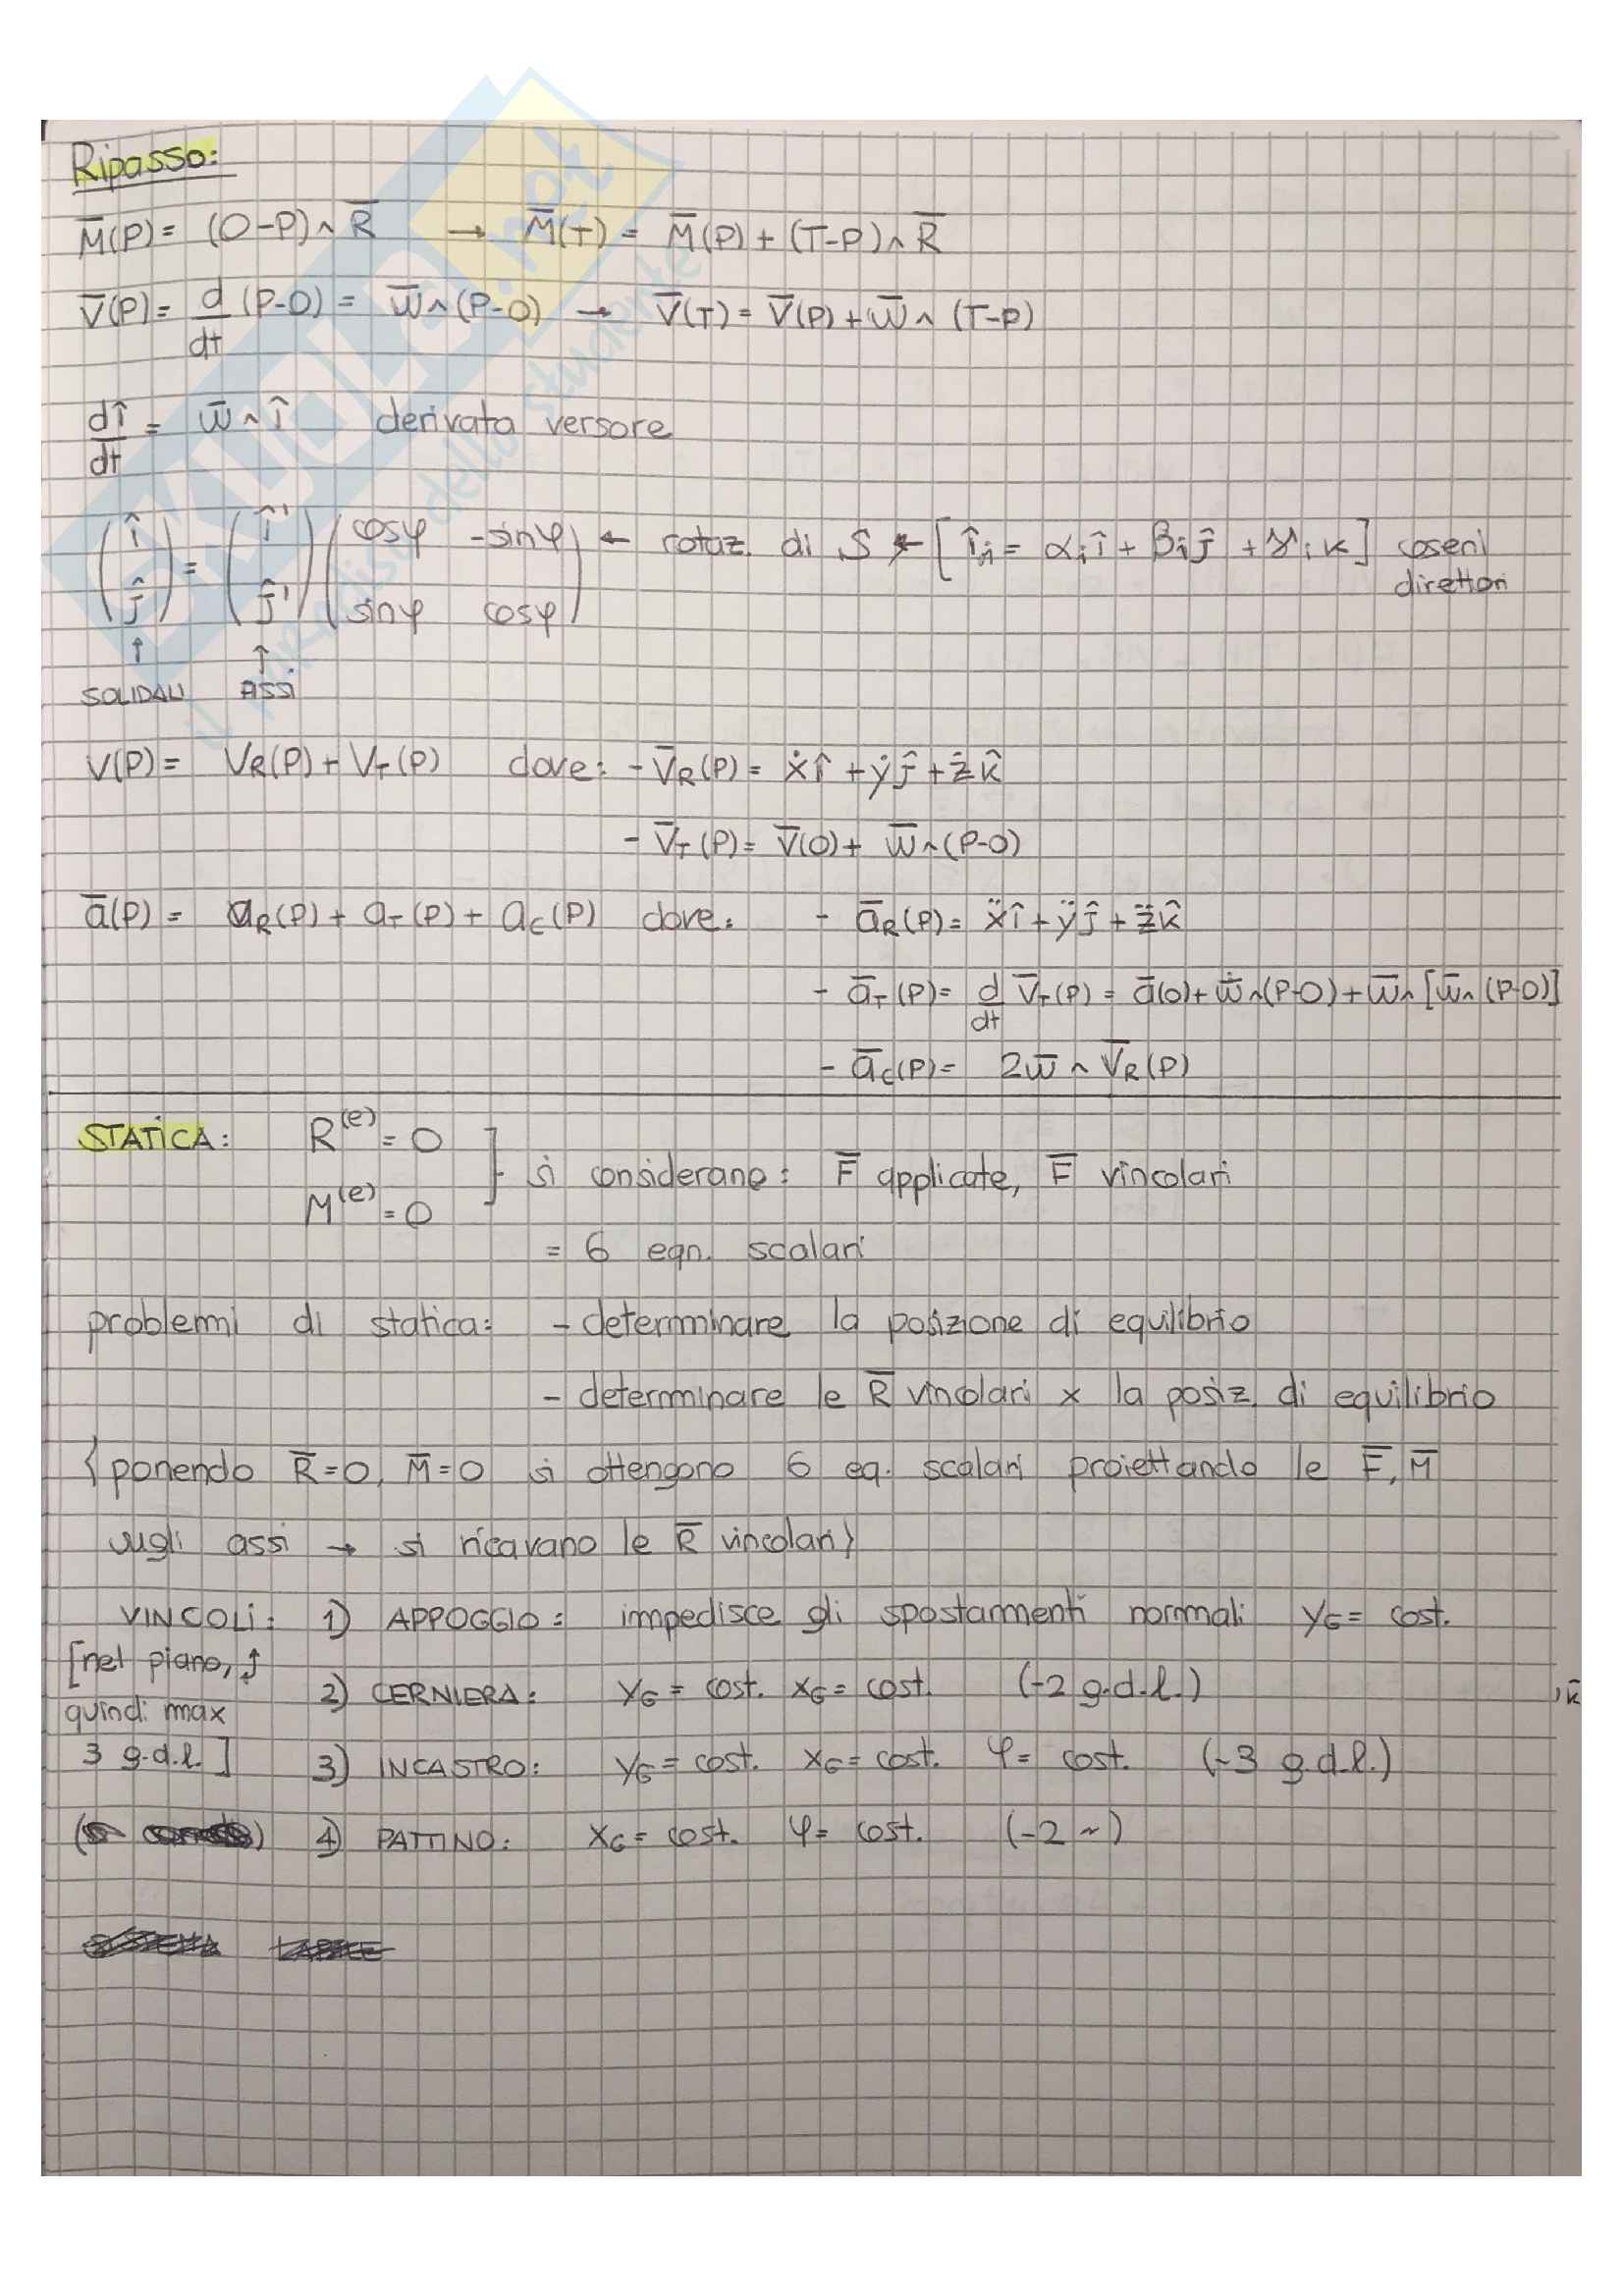 Ripasso:
M̅(P) = (O-P) ∧ R̅ → M̅(T) = M̅(P) + (T-P) ∧ R̅
V̅(P) = d/dt (P-O) = w̅ ∧ (P-O) → V̅(T) = V̅(P) + w̅ ∧ (T-P)
dî/dt = w̅ ∧ î derivata versore
(î ĵ) = (î' ĵ') (cosφ -sinφ sinφ cosφ) ← rotaz. di S ← [îᵢ = αᵢî + βᵢĵ + γᵢk] coseni direttori
↑ ↑
SOLIDALI ASSI
V(P) = V_R(P) + V_T(P) dove: - V̅_R(P) = ẋî + ẏĵ + żk̂
- V̅_T(P) = V̅(O) + w̅ ∧ (P-O)
a̅(P) = a_R(P) + a_T(P) + a_C(P) dove: - a̅_R(P) = ẍî + ÿĵ + z̈k̂
- a̅_T(P) = d/dt V̅_T(P) = a̅(O) + ẇ̅ ∧ (P-O) + w̅ ∧ [w̅ ∧ (P-O)]
- a̅_C(P) = 2w̅ ∧ V̅_R(P)
STATICA: R⁽ᵉ⁾ = 0
M⁽ᵉ⁾ = 0 } si considerano: F̅ applicate, F̅ vincolari
= 6 eqn. scalari
problemi di statica: - determinare la posizione di equilibrio
- determinare le R̅ vincolari x la posiz. di equilibrio
{ponendo R̅=0, M̅=0 si ottengono 6 eq. scalari proiettando le F̅, M̅
sugli assi → si ricavano le R̅ vincolari}
VINCOLI: 1) APPOGGIO: impedisce gli spostamenti normali y_G = cost.
[nel piano,
2) CERNIERA: y_G = cost. x_G = cost. (-2 g.d.l.)
, k̂
quindi max
3 g.d.l.]
3) INCASTRO: y_G = cost. x_G = cost. φ = cost. (-3 g.d.l.)
4) PATTINO: x_G = cost. φ = cost. (-2 ~)
SKUOLA.net
il paradiso dello studente